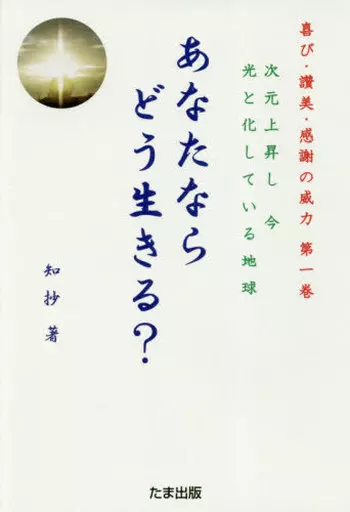 喜び・讃美・感謝の威力 第一巻
次元上昇し 今
光と化している地球
あなたなら
どう生きる?
知抄 著
たま出版